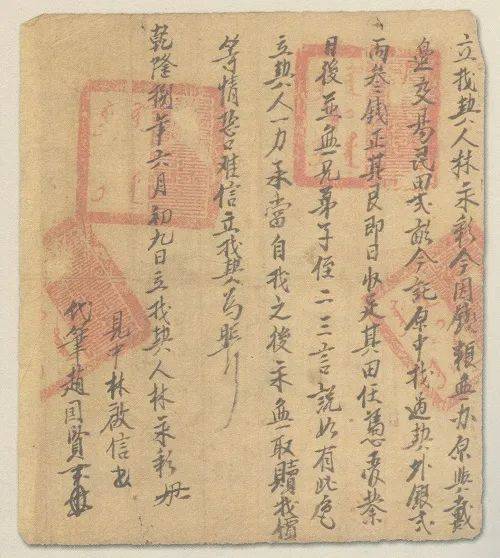 立找契人林禾彩今因錢粮無办原與戴
邊交易民田弍畝今託原中找過契外銀弍
両叁錢正其艮即日收足其田任憑管業
日後並無兄弟子侄二三言説如有此色
立契人一力承當自找之後永無取贖找價
等情恐口难信立找契為照
乾隆捌年六月初九日立找契人林禾彩
見中林啟信
代筆趙国賢